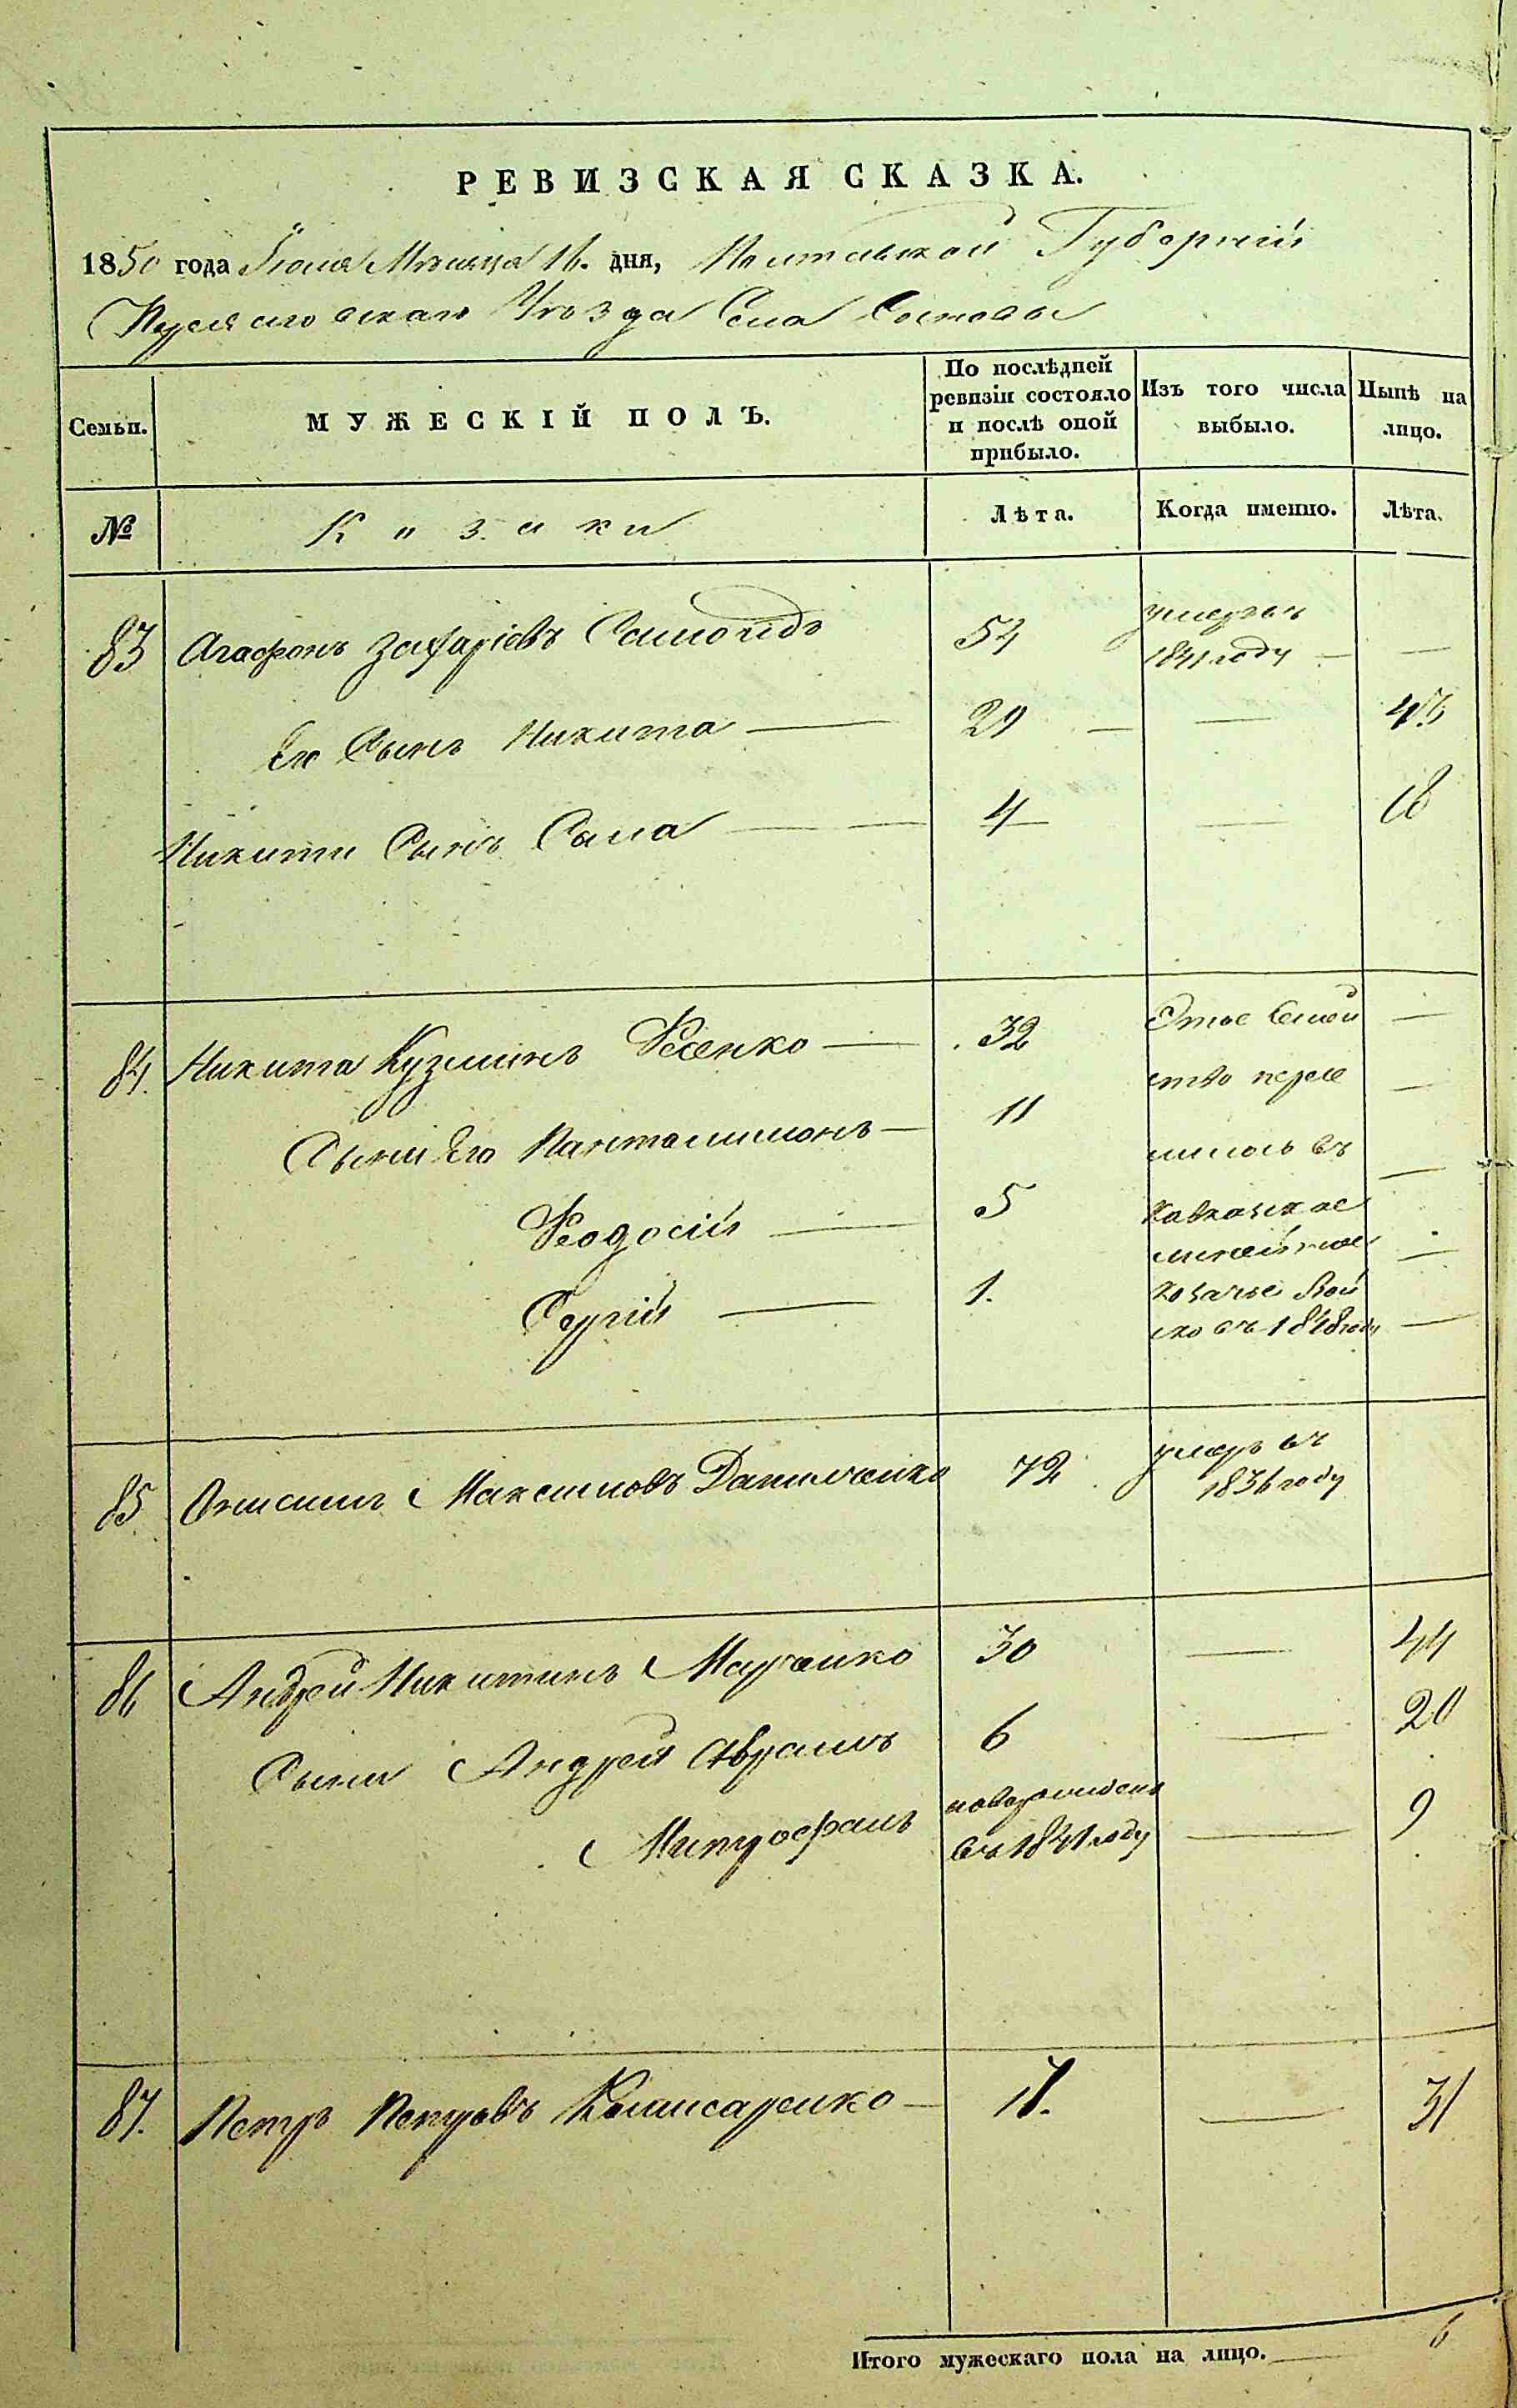 РЕВИЗСКАЯ СКАЗКА.
1850 года Июля Месяца 16. дня, Полтавской Губерніи
Переясловскаго Уезда Села Сосновы
Семьи.
МУЖЕСКІЙ ПОЛЪ.
По послѣдней ревизіи состояло и послѣ оной прибыло.
Изъ того числа выбыло.
Нынѣ на лицо.
№
Козаки
Лѣта.
Когда именно.
Лѣта.
83 Агафонъ Захаріевъ Самойдъ 54 умеръ въ 1841 году — —
Его Сынъ Никита — 29 — — 43
Никити Сынъ Сава — 4 — 18
84. Никита Кузминъ Фесенко — 32 Этое Семей —
Сыни Его Пантелимонъ — 11 ство пересе —
лилось въ
Феодосій — 5 Кавказкое —
линейное —
Сергій — 1. Козачье Вой
ско въ 1848 году —
85 Онисимъ Максимовъ Данилченко 72 умеръ въ
1836 году
86 Андрей Никитинъ Марченко 30 — 44
Сыни Андрея Аврамъ 6 — 20
Митрофанъ новорожденъ въ 1841 году — 9
87. Петръ Петровъ Комисаренко — 17. — 31
Итого мужескаго пола на лицо. — 6